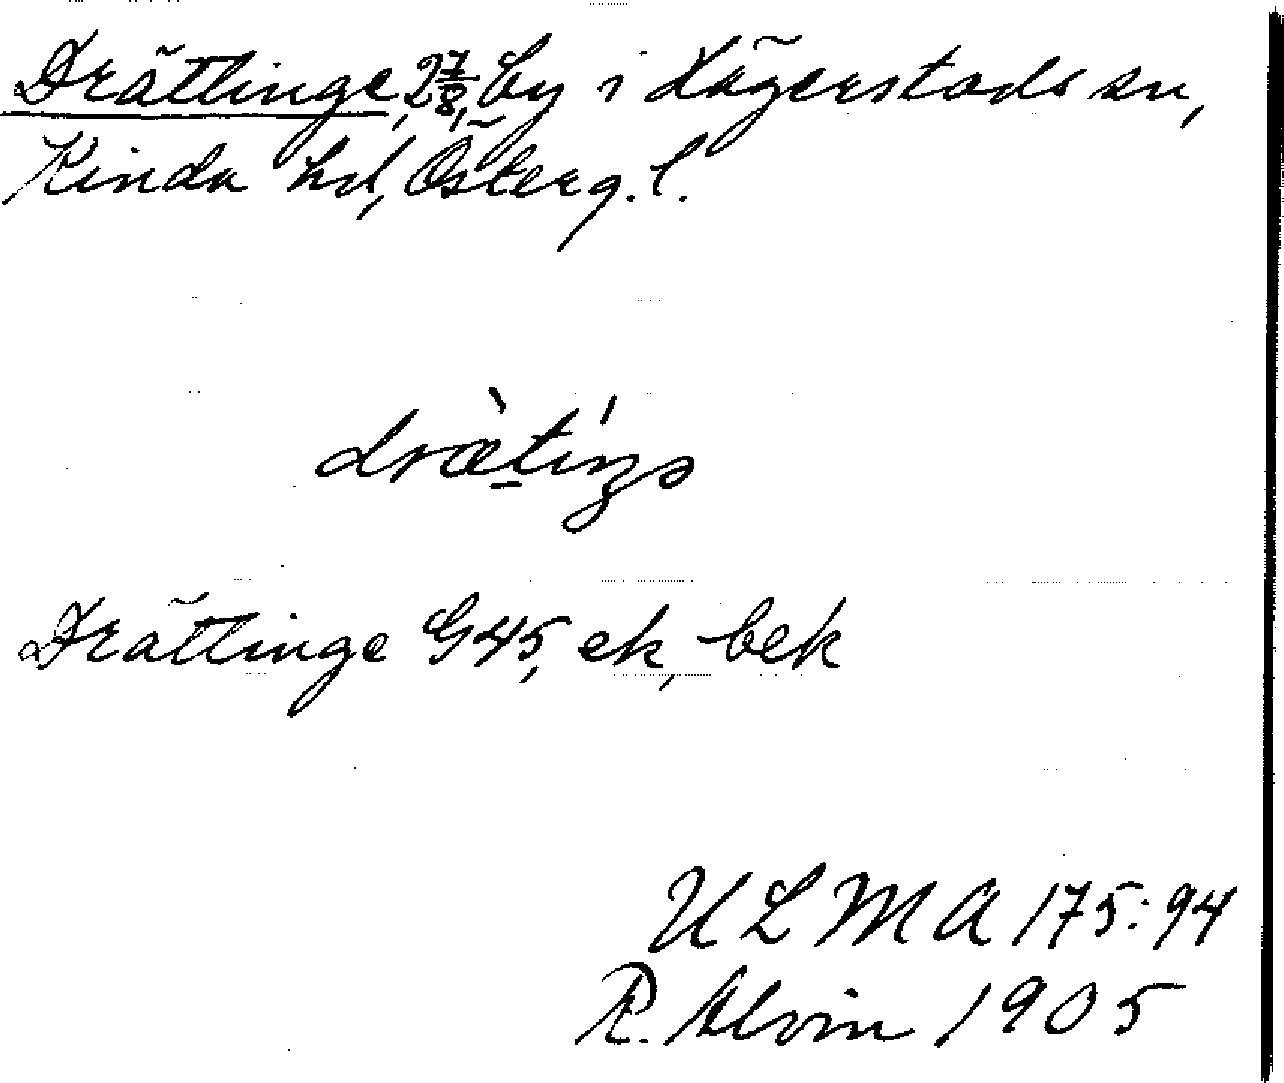 Drättinge, 2 7/8, by i Hägerstads sn,
Kinda hd, Österg. l.
drætiŋə
Drättinge G45, ek, bek
ULMA 175:94
R. Alvin 1905